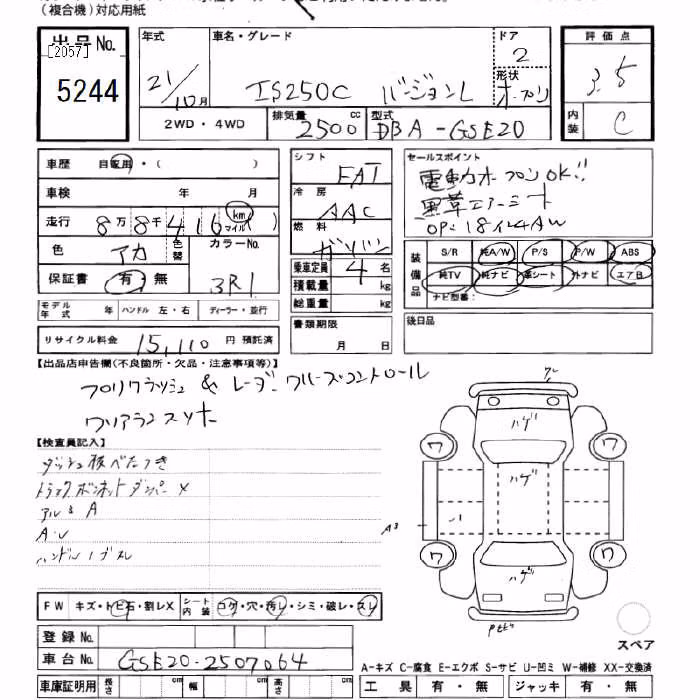 （複合機）対応用紙
出品No.
[2057]
5244
年式
21/10月
車名・グレード
IS250C バージョンL
ドア
2
形状
オープン
評価点
3.5
内装
C
2WD・4WD
排気量 2500 cc
型式 DBA-GSE20
車歴 自家用・( )
車検 年 月
走行 8万8千416 km マイル( )
色 アカ 色替
カラーNo. 3R1
保証書 有・無
モデル年式 年 ハンドル 左・右 ディーラー・並行
リサイクル料金 15,110 円 預託済
シフト FAT
冷房 AAC
燃料 ガソリン
乗車定員 4 名
積載量 kg
総重量 kg
書類期限
月 日
セールスポイント
電動オープンOK!!
黒革エアーシート
OP: 18インチAW
装備品
S/R 純A/W P/S P/W ABS
純TV 純ナビ 革シート 外ナビ エアB
ナビ型番：
後日品
【出品店申告欄(不良箇所・欠品・注意事項等)】
プリクラッシュ & レーダークルーズコントロール
クリアランスソナー
【検査員記入】
ダッシュ板べたつき
トランク ボンネットダンパー ×
アルミ A
A・U
ハンドルスレ
FW キズ・トビ石・割レX
シート内装 コゲ・穴・汚レ・シミ・破レ・スレ
登録No.
車台No. GSE20-2507064
車庫証明用 長さ cm 幅 cm 高さ cm
ハゲ
ハゲ
ハゲ
ワ
ワ
ワ
ワ
スペア
A-キズ C-腐食 E-エクボ S-サビ U-凹ミ W-補修 XX-交換済
工具 有・無 ジャッキ 有・無